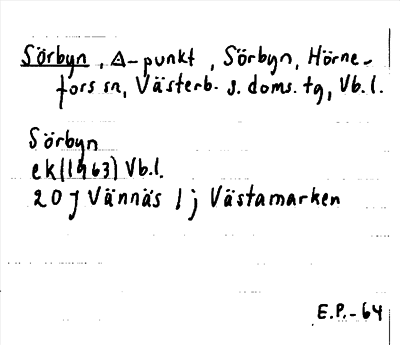 Sörbyn, Δ-punkt, Sörbyn, Hörne-
fors sn, Västerb. s. doms. tg, Vb. l.
Sörbyn
ek (1963) Vb.l.
20 J Vännäs 1 j Västamarken
E.P.-64